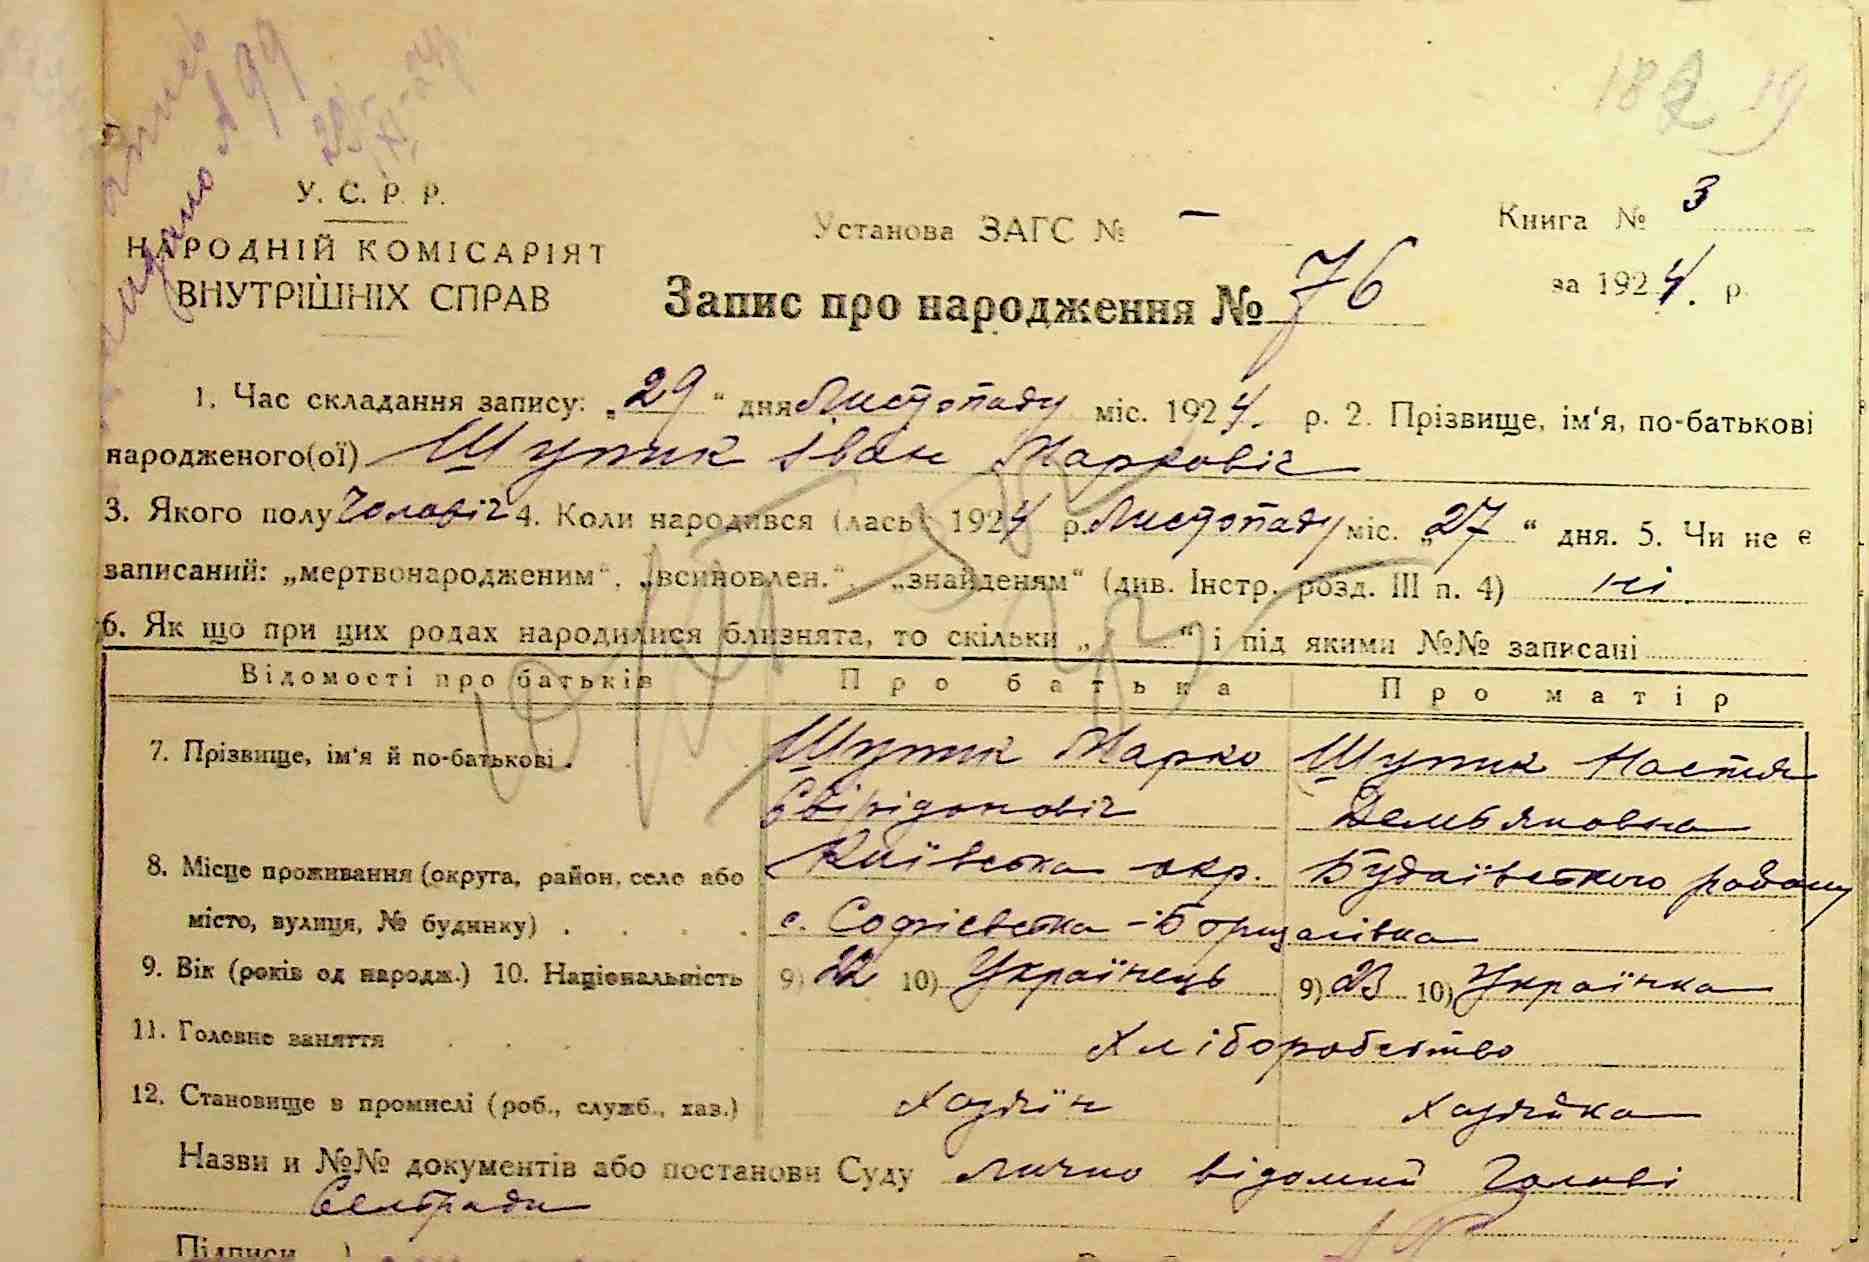 № 99
29/XI-24
182 19
У. С. Р. Р.
НАРОДНІЙ КОМІСАРІЯТ
ВНУТРІШНІХ СПРАВ
Установа ЗАГС № –
Книга № 3
за 1924. р.
Запис про народження № 76
1. Час складання запису: „29“ дня Листопаду міс. 1924. р. 2. Прізвище, ім'я, по-батькові
народженого(ої) Шупик Іван Марковіч
3. Якого полу Чоловіч 4. Коли народився (лась) 1924 р. Листопаду міс. „27“ дня. 5. Чи не є
записаний: „мертвонародженим“, „всиновлен.“, „знайденям“ (див. Інстр. розд. III п. 4) ні
6. Як що при цих родах народилися близнята, то скільки „ “ і під якими №№ записані
Відомості про батьків Про батька Про матір
7. Прізвище, ім'я й по-батькові . Шупик Марко Шупик Настя
Свірідоновіч Демьяновна
8. Місце проживання (округа, район, село або Київська окр. Будаївського району
місто, вулиця, № будинку) . . . . с. Софієвська-Борщагівка
9. Вік (років од народж.) 10. Національність 9) 22 10) Українець 9) 23 10) Українка
11. Головне заняття . . . Хліборобство
12. Становище в промислі (роб., служб., хаз.) Хазяїн Хазяйка
Назви и №№ документів або постанови Суду лично відомий Голові
Сельради
Підписи